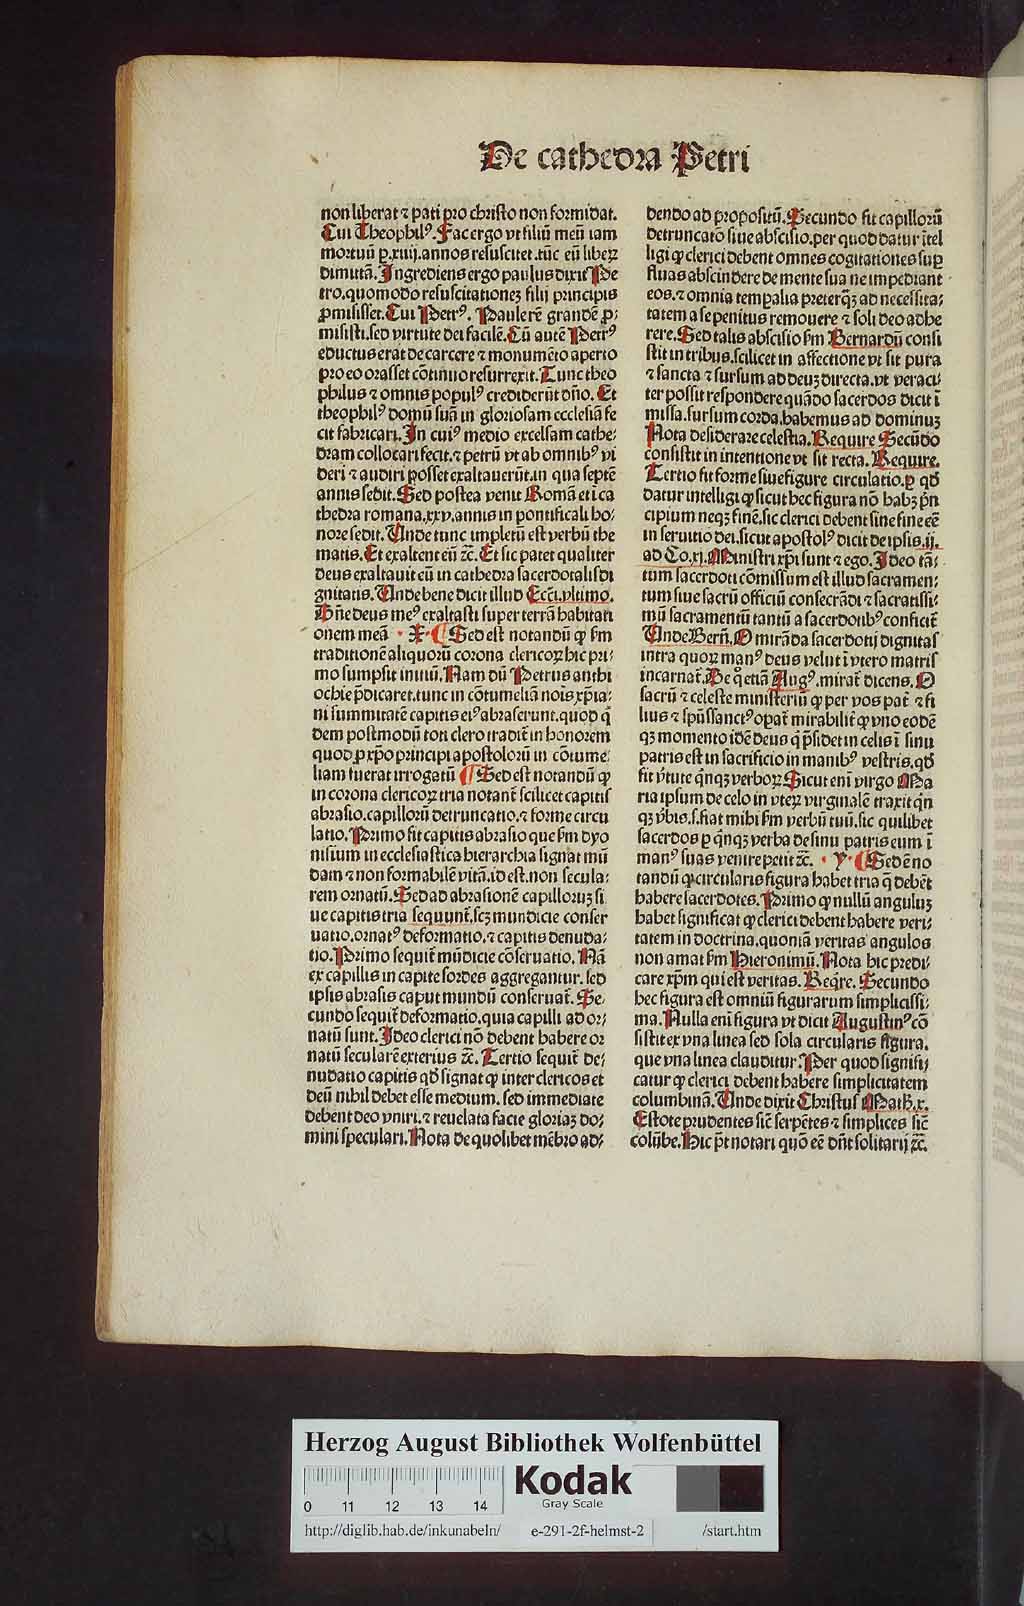 De cathedra Petri
non liberat ⁊ pati pro christo non formidat.
Cui Theophilꝰ. Fac ergo vt filiū meū iam
mortuū ꝑ.xiiij.annos resuscitet.tūc eū liberū
dimittā. Ingrediens ergo paulus dixit Pe
tro.quomodo resuscitationeʒ filij principis
ꝓmisisset. Cui Petrꝰ. Paule rē grandē ꝓ-
misisti.sed virtute dei facilē. Cū autē Petrꝰ
eductus erat de carcere ⁊ monumēto aperto
pro eo orasset cōtinuo resurrexit. Tunc theo
philus ⁊ omnis populꝰ crediderūt dn̄o. Et
theophilꝰ domū suā in gloriosam ecclesiā fe
cit fabricari. In cuiꝰ medio excelsam cathe-
dram collocari fecit.⁊ petrū vt ab omnibꝰ vi
deri ⁊ audiri posset exaltauerūt.in qua septē
annis sedit. Sed postea venit Romā et i ca
thedra romana.xxv.annis in pontificali ho-
nore sedit. Unde tunc impletū est verbū the
matis. Et exaltent eū ⁊c̄. Et sic patet qualiter
deus exaltauit eū in cathedra sacerdotalis di
gnitatis. Unde bene dicit illud Ecci.vltimo.
Dn̄e deus meꝰ exaltasti super terrā habitati
onem meā · X · ¶ Sed est notandū ꝙ ẜm
traditionē aliquorū corona clericoꝝ hic pri-
mo sumpsit initiū. Nam dū Petrus anthi
ochie p̄dicaret.tunc in cōtumeliā nois xp̄ia-
ni summitatē capitis eiꝰ abraserunt.quod q̄
dem postmodū toti clero tradit̄ in honorem
quod ꝓ xp̄o principi apostolorū in cōtume-
liam fuerat irrogatū ¶ Sed est notandū ꝙ
in corona clericoꝝ tria notant̄ scilicet capitis
abrasio.capillorū detruncatio.⁊ forme circu
latio. Primo fit capitis abrasio que ẜm dyo
nisium in ecclesiastica hierarchia signat mū
dam ⁊ non formabilē vitā.id est.non secula-
rem ornatū. Sed ad abrasionē capilloruʒ si
ue capitis tria sequunt̄.scʒ mundicie conser
uatio.ornatꝰ deformatio.⁊ capitis denuda-
tio. Primo sequit̄ mūdicie cōseruatio. Nā
ex capillis in capite sordes aggregantur.sed
ipsis abrasis caput mundū conseruat̄. Se
cundo sequit̄ deformatio.quia capilli ad or-
natū sunt. Ideo clerici nō debent habere or
natū secularē exterius ⁊c̄. Tertio sequit̄ de-
nudatio capitis qd̄ signat ꝙ inter clericos et
deū nihil debet esse medium.sed immediate
debent deo vniri.⁊ reuelata facie gloriaʒ do-
mini speculari. Nota de quolibet mēbro ad-
dendo ad propositū. Secundo fit capillorū
detruncatō siue abscisio.per quod datur ītel
ligi ꝙ clerici debent omnes cogitationes suꝑ
fluas abscindere de mente sua ne impediant
eos.⁊ omnia temꝑalia preterqʒ ad necessita-
tatem a se penitus remouere ⁊ soli deo adhe
rere. Sed talis abscisio ẜm Bernardū consi
stit in tribus.scilicet in affectione vt sit pura
⁊ sancta ⁊ sursum ad deuʒ directa.vt veraci-
ter possit respondere quādo sacerdos dicit ī
missa.sursum corda.habemus ad dominuʒ
Nota desiderare celestia. Require Secūdo
consistit in intentione vt sit recta. Require.
Tertio fit forme siue figure circulatio.ꝑ qd̄
datur intelligi ꝙ sicut hec figura nō habʒ pn̄
cipium neqʒ finē.sic clerici debent sine fine eē
in seruitio dei.sicut apostolꝰ dicit de ipsis.ij.
ad Co.xj. Ministri xp̄i sunt ⁊ ego. Ideo tā-
tum sacerdoti cōmissum est illud sacramen-
tum siue sacrū officiū consecrādi ⁊ sacratissi-
mū sacramentū tantū a sacerdotibꝰ conficit̄
Unde Bern̄. O mirāda sacerdotij dignitas
intra quoꝝ manꝰ deus velut ī vtero matris
incarnat̄. De q̊ etiā Augꝰ.mirat̄ dicens. O
sacrū ⁊ celeste ministeriū ꝙ per vos pat̄ ⁊ fi
lius ⁊ spūssanctꝰ opat̄ mirabilit̄ ꝙ vno eodē
qʒ momento idē deus q̄ p̄sidet in celis ī sinu
patris est in sacrificio in manibꝰ vestris.qd̄
fit v̄tute q̄nqʒ verboꝝ Sicut eni virgo Ma
ria ipsum de celo in vteꝝ virginalē traxit q̄n
qʒ v̄bis.s.fiat mihi ẜm verbū tuū.sic quilibet
sacerdos ꝑ q̄nqʒ verba de sinu patris eum ī
manꝰ suas venire petit ⁊c̄. · Y · ¶ Sed ē no
tandū ꝙ circularis figura habet tria q̄ debēt
habere sacerdotes. Primo ꝙ nullū anguluʒ
habet significat ꝙ clerici debent habere veri-
tatem in doctrina.quoniā veritas angulos
non amat ẜm Hieronimū. Nota hic predi-
care xp̄m qui est veritas. Req̄re. Secundo
hec figura est omniū figurarum simplicissi-
ma. Nulla eni figura vt dicit Augustinꝰ cō
sistit ex vna linea sed sola circularis figura.
que vna linea clauditur. Per quod signifi-
catur ꝙ clerici debent habere simplicitatem
columbinā. Unde dixit Christus Math.x.
Estote prudentes sic̄ serpētes ⁊ simplices sic̄
colūbe. Hic p̄t notari quō eē dn̄t solitarij ⁊c̄.
Herzog August Bibliothek Wolfenbüttel
Kodak
Gray Scale
0 11 12 13 14
http://diglib.hab.de/inkunabeln/ e-291-2f-helmst-2 /start.htm